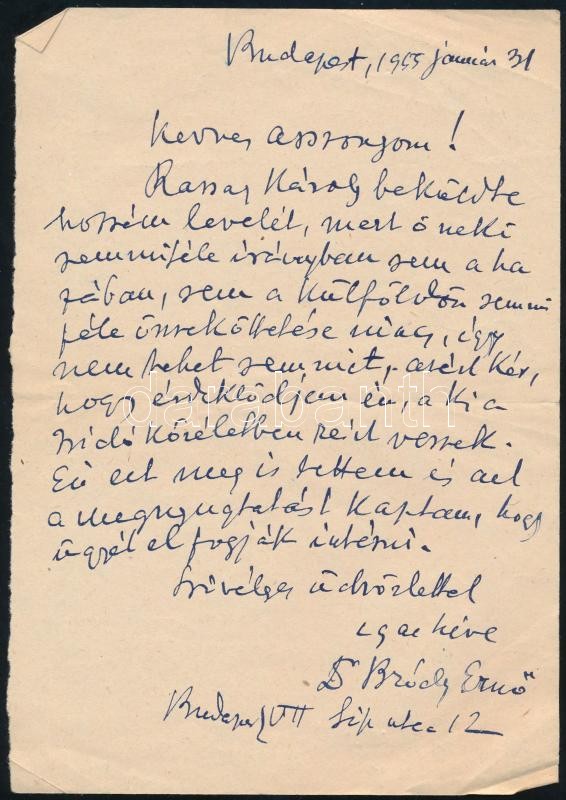 Budapest, 1955 január 31
Kedves Asszonyom!
Rassay Károly beküldte
hozzám levelét, mert ő neki
semmiféle irányban sem a ha
zában, sem a külföldön semmi
féle összeköttetése nincs, így
nem tehet semmit, azért kér,
hogy érdeklődjem én, a ki a
zsidó közéletben részt veszek.
Én ezt meg is tettem és azt
a megnyugtatást kaptam, hogy
ügyét el fogják intézni.
Szivélyes üdvözlettel
igaz híve
Dr Bródy Ernő
Budapest VII Sip utca 12
darabanth